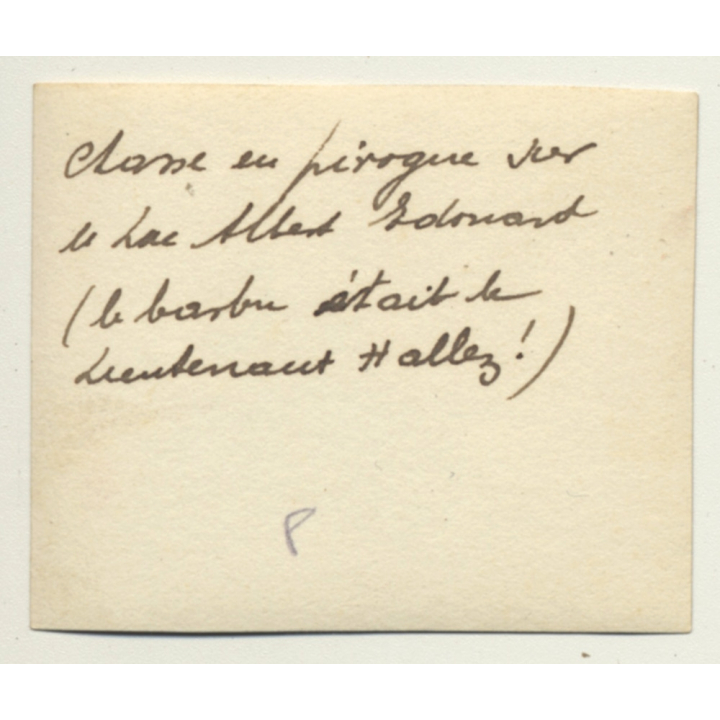 Chasse en pirogue sur
le Lac Albert Edouard
(le barbu était le
Lieutenant Hallez!)
P